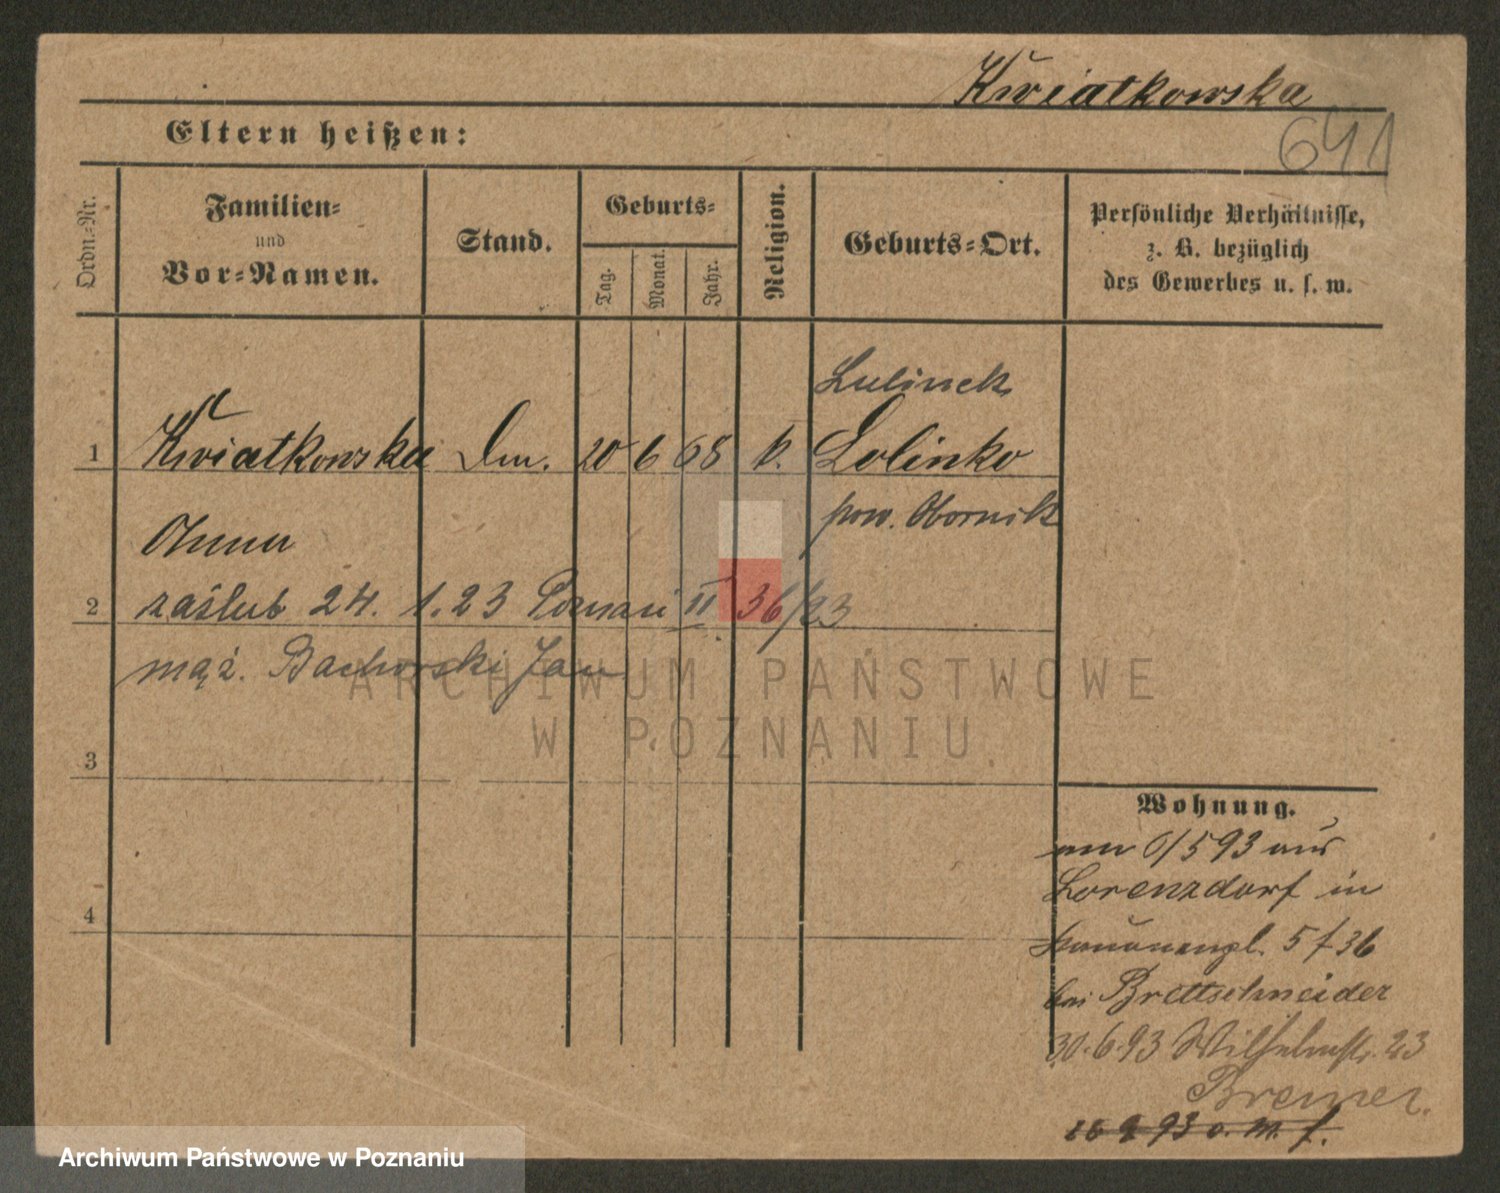 Kwiatkowska
641
Eltern heißen:
Ordn.-Nr.
Familien-
und
Vor-Namen.
Stand.
Geburts-
Tag.
Monat.
Jahr.
Religion.
Geburts-Ort.
Persönliche Verhältnisse,
z. B. bezüglich
des Gewerbes u. s. w.
Lulinek
1 Kwiatkowska Dm. 20 6 68 k. Lolinko
pow. Obornik
Anna
2 zaślub 24. 1. 23 Poznań II 36/23
mąż. Bachorski Jan
ARCHIWUM PAŃSTWOWE
W POZNANIU
3
4
Wohnung.
am 6/5 93 aus
Lorenzdorf in
5 f 36
bei Brettschneider
30.6.93 Wilhelmstr. 23
Bremer.
93 o. M. f.
Archiwum Państwowe w Poznaniu